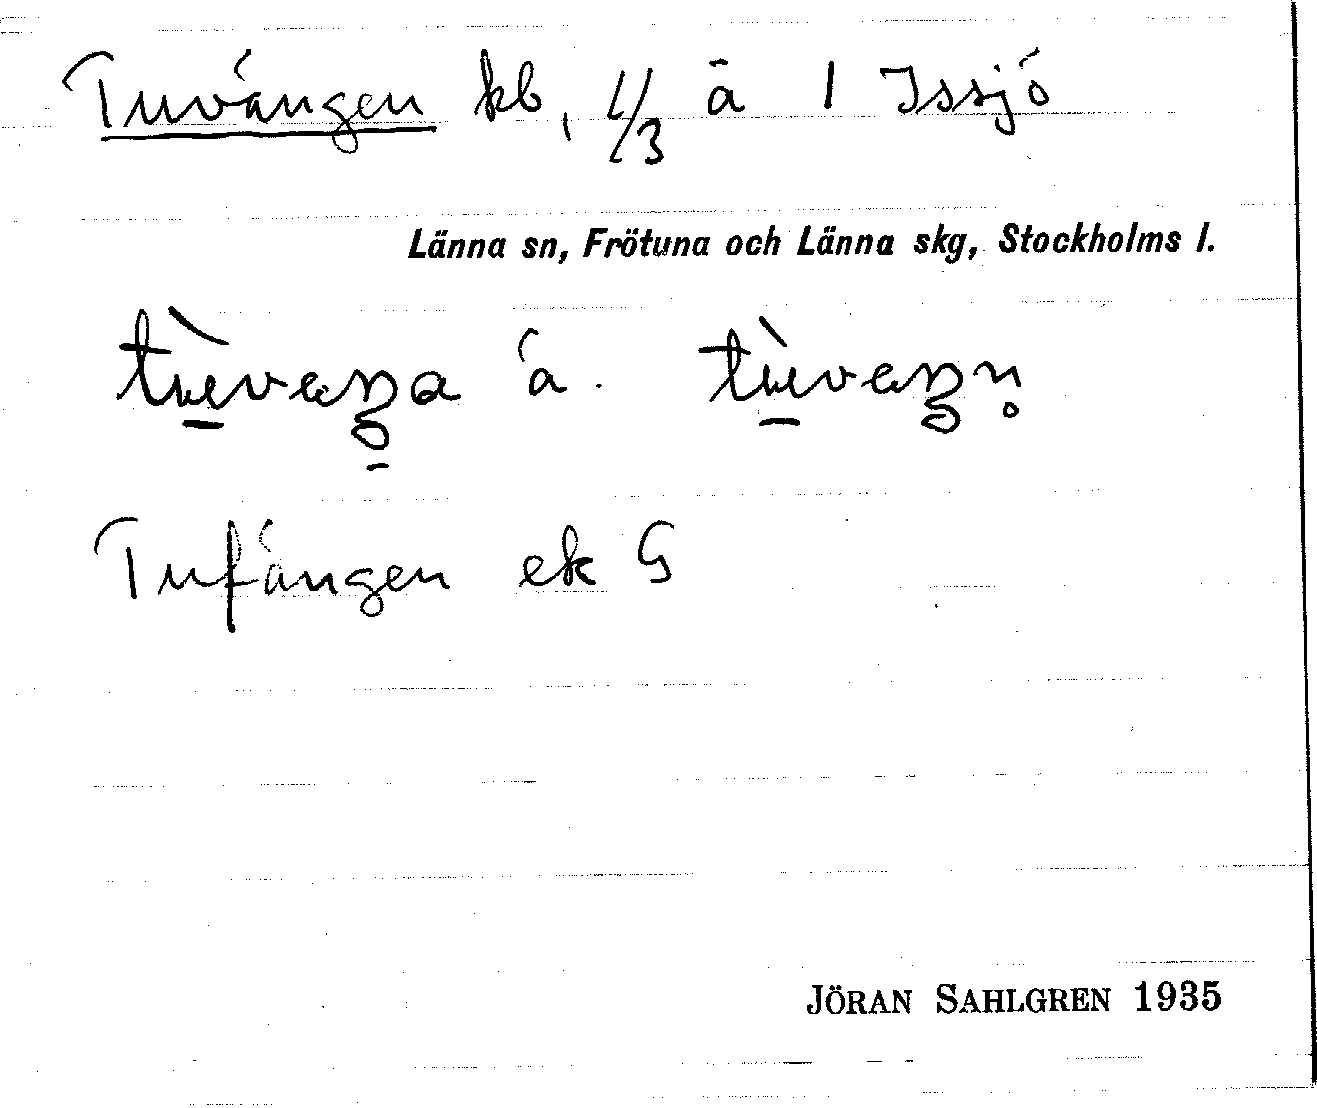 Tuvången kb, 1/3 å 1 Issjö
Länna sn, Frötuna och Länna skg, Stockholms l.
å.
Tufången ek G
JÖRAN SAHLGREN 1935